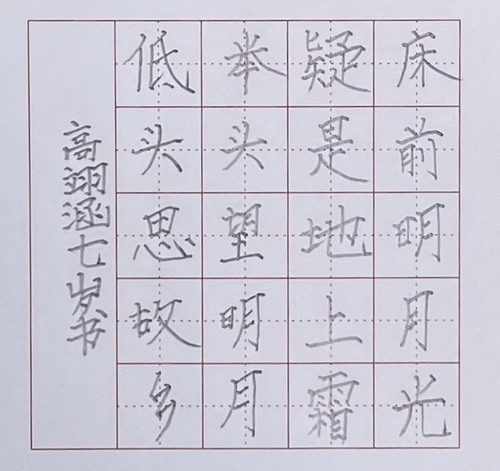 床前明月光
疑是地上霜
举头望明月
低头思故乡
高翊涵七岁书